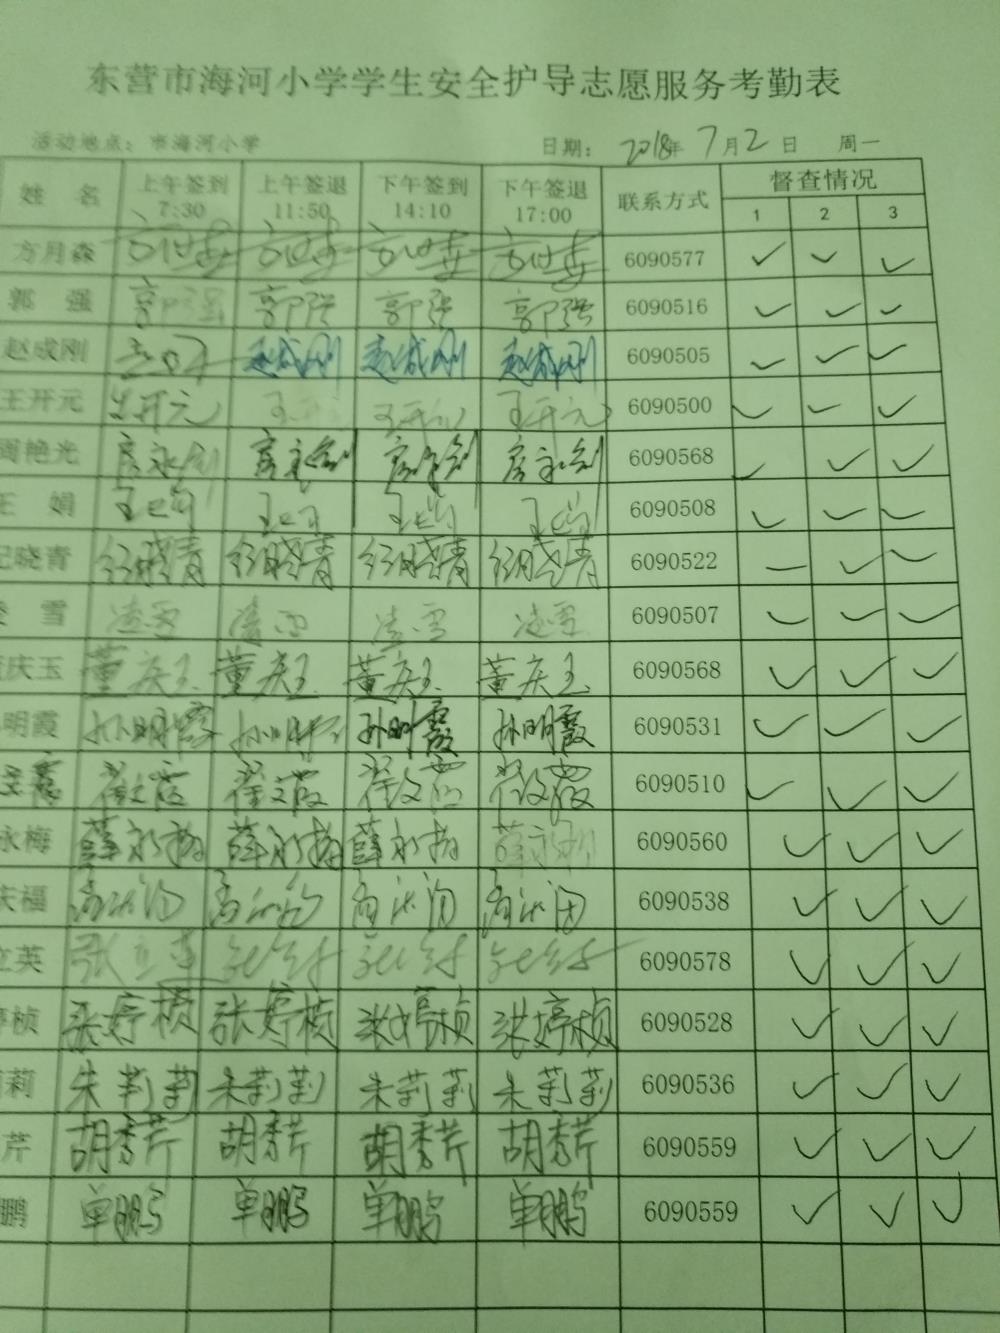 东营市海河小学学生安全护导志愿服务考勤表
活动地点：市海河小学 日期：2018年7月2日 周一
姓 名 上午签到 上午签退 下午签到 下午签退 联系方式 督查情况
7:30 11:50 14:10 17:00 1 2 3
方月森 6090577 ✓ ✓ ✓
郭 强 郭强 郭强 郭强 郭强 6090516 ✓ ✓ ✓
赵成刚 赵成刚 赵成刚 赵成刚 6090505 ✓ ✓ ✓
王开元 王开元 王开元 王开元 6090500 ✓ ✓ ✓
周艳光 6090568 ✓ ✓ ✓
王 娟 王娟 王娟 王娟 王娟 6090508 ✓ ✓ ✓
纪晓青 纪晓青 纪晓青 纪晓青 纪晓青 6090522 ✓ ✓ ✓
凌 雪 凌雪 凌雪 凌雪 凌雪 6090507 ✓ ✓ ✓
董庆玉 董庆玉 董庆玉 董庆玉 董庆玉 6090568 ✓ ✓ ✓
明霞 孙明霞 孙明霞 孙明霞 孙明霞 6090531 ✓ ✓ ✓
翟文霞 翟文霞 翟文霞 翟文霞 6090510 ✓ ✓ ✓
永梅 薛永梅 薛永梅 薛永梅 薛永梅 6090560 ✓ ✓ ✓
庆福 6090538 ✓ ✓ ✓
立英 张立英 6090578 ✓ ✓ ✓
婷桢 张婷桢 张婷桢 张婷桢 张婷桢 6090528 ✓ ✓ ✓
莉莉 朱莉莉 朱莉莉 朱莉莉 朱莉莉 6090536 ✓ ✓ ✓
芹 胡秀芹 胡秀芹 胡秀芹 胡秀芹 6090559 ✓ ✓ ✓
鹏 单鹏 单鹏 单鹏 单鹏 6090559 ✓ ✓ ✓